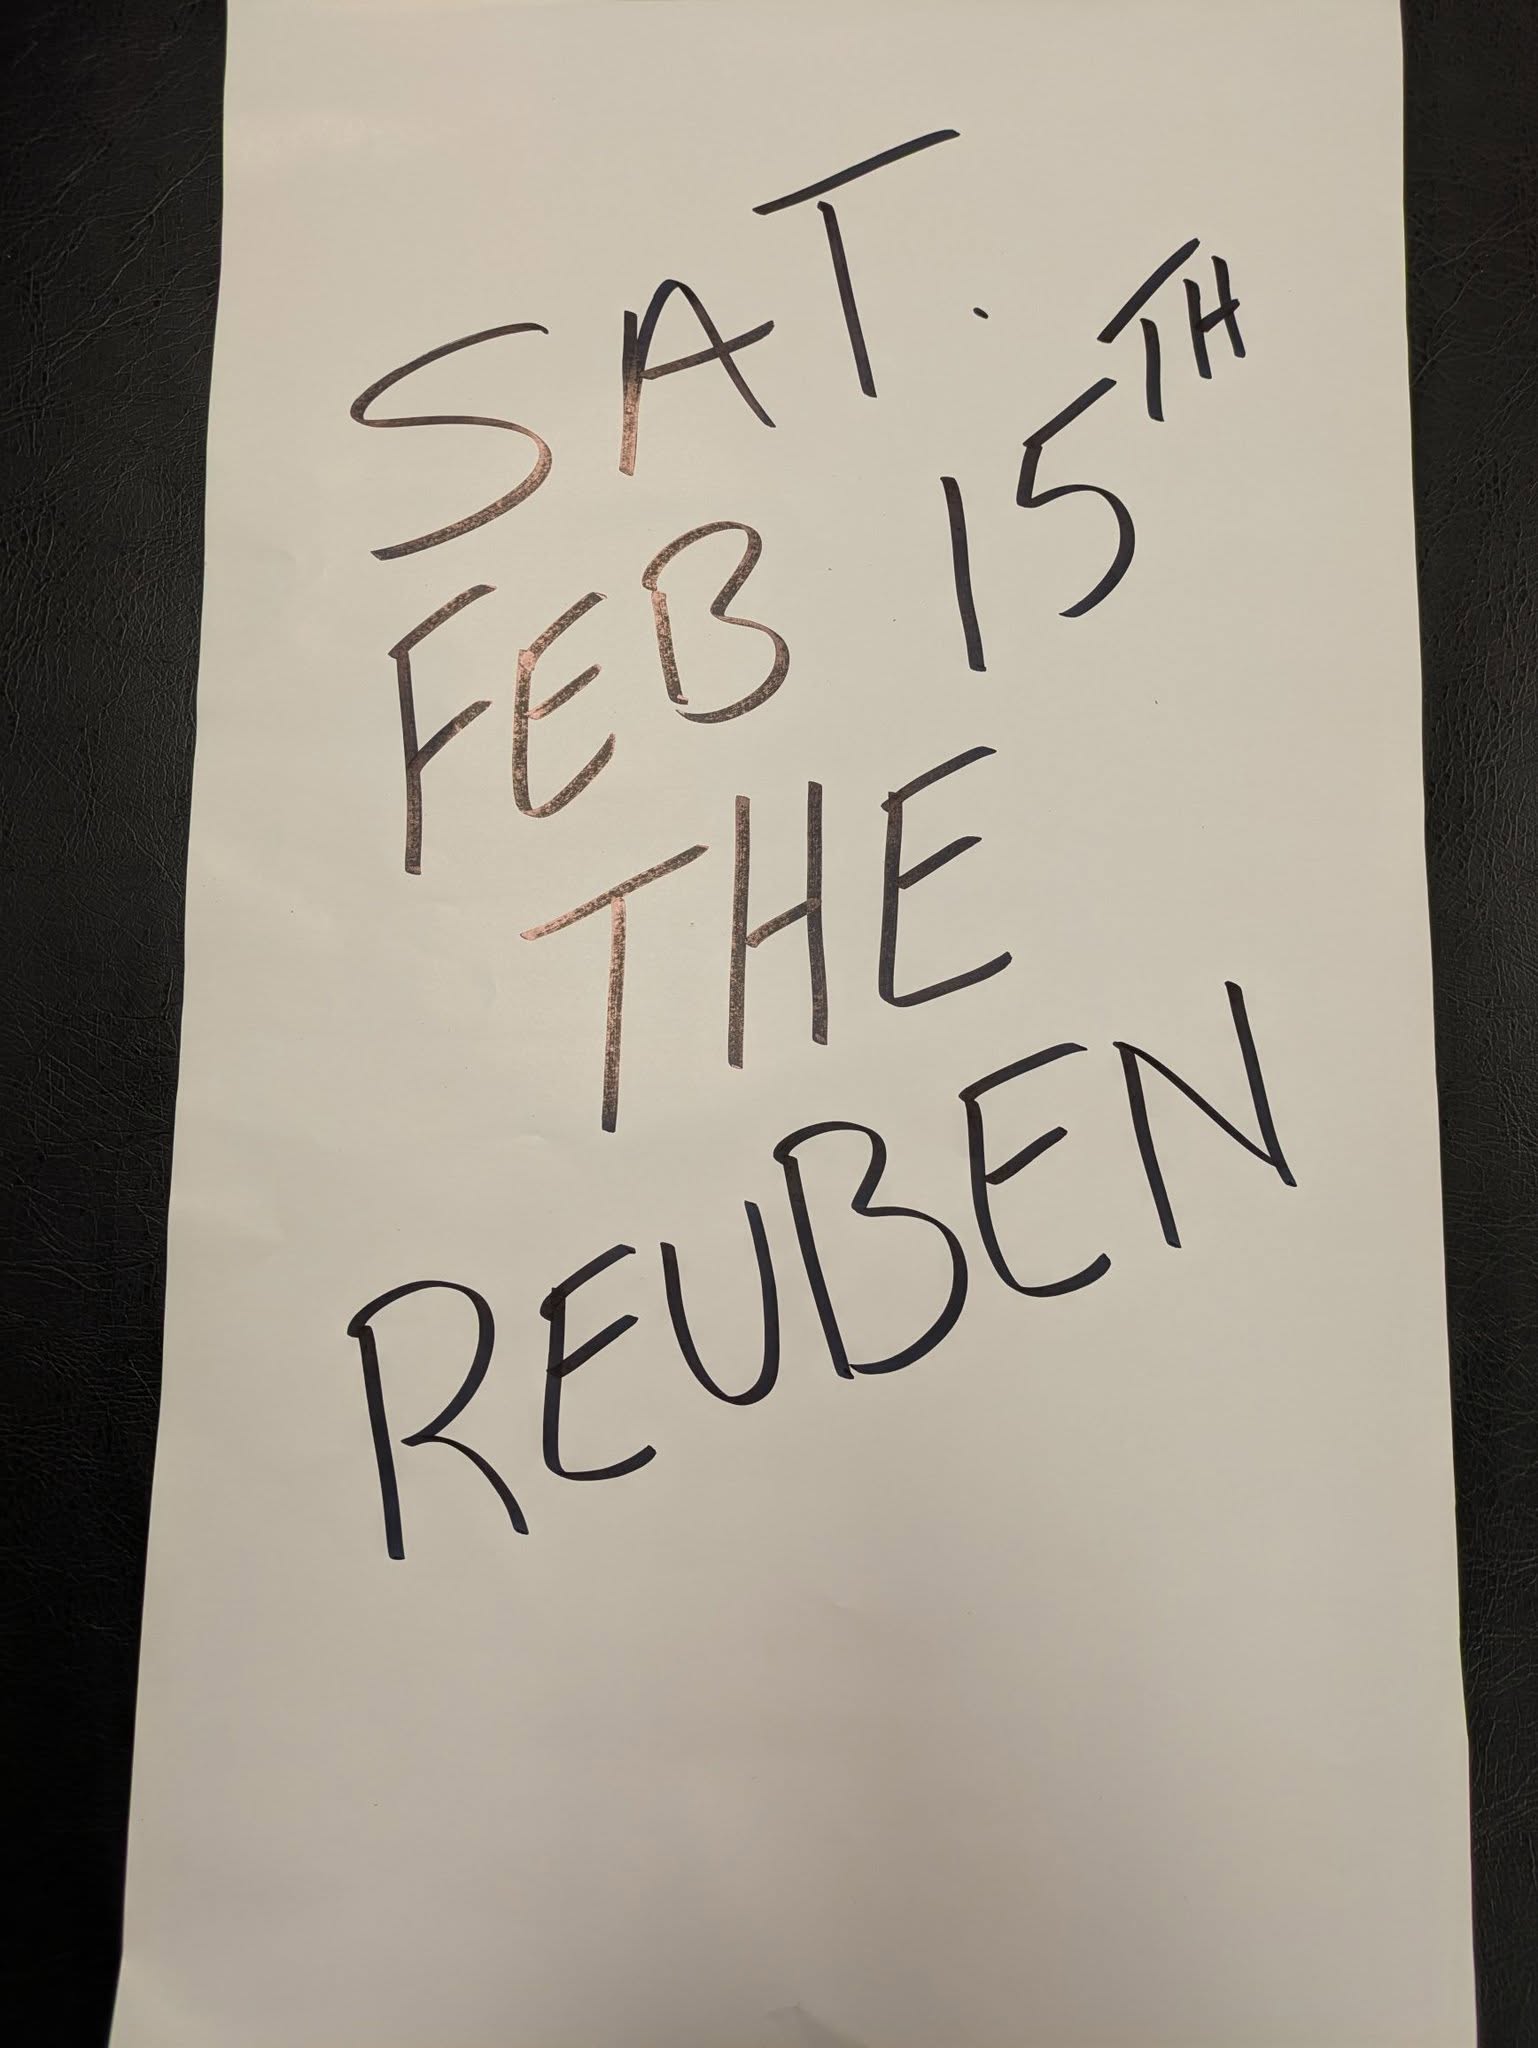 SAT.
FEB 15TH
THE
REUBEN